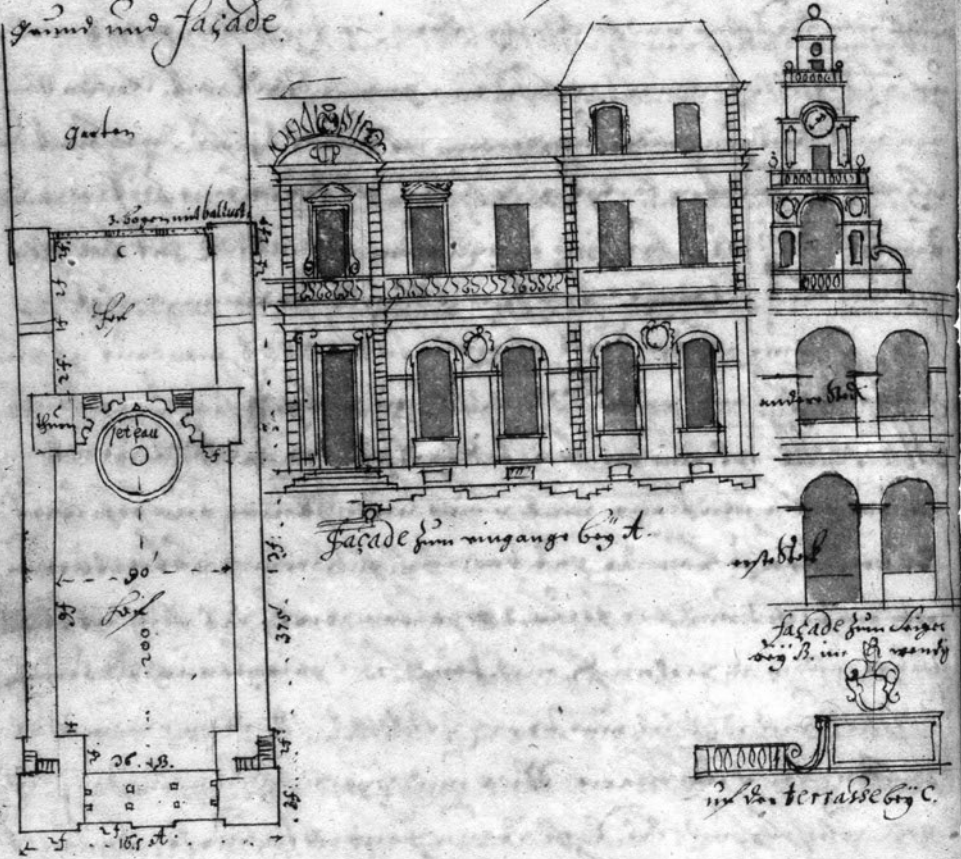 Grund und façade.
Garten
3. bogen mit ballust.
C
2f.
2f
2f
2f
2f.
Hof
thurn
jeteau
2f
90'
Hof
9f
200
12f
375'
2f
36. B.
2f
2f
16.f A.
Façade zum eingange beÿ A.
andere Stock
erste Stock
façade zum Seiger
beÿ B. inwendig
uf der terrasse beÿ C.